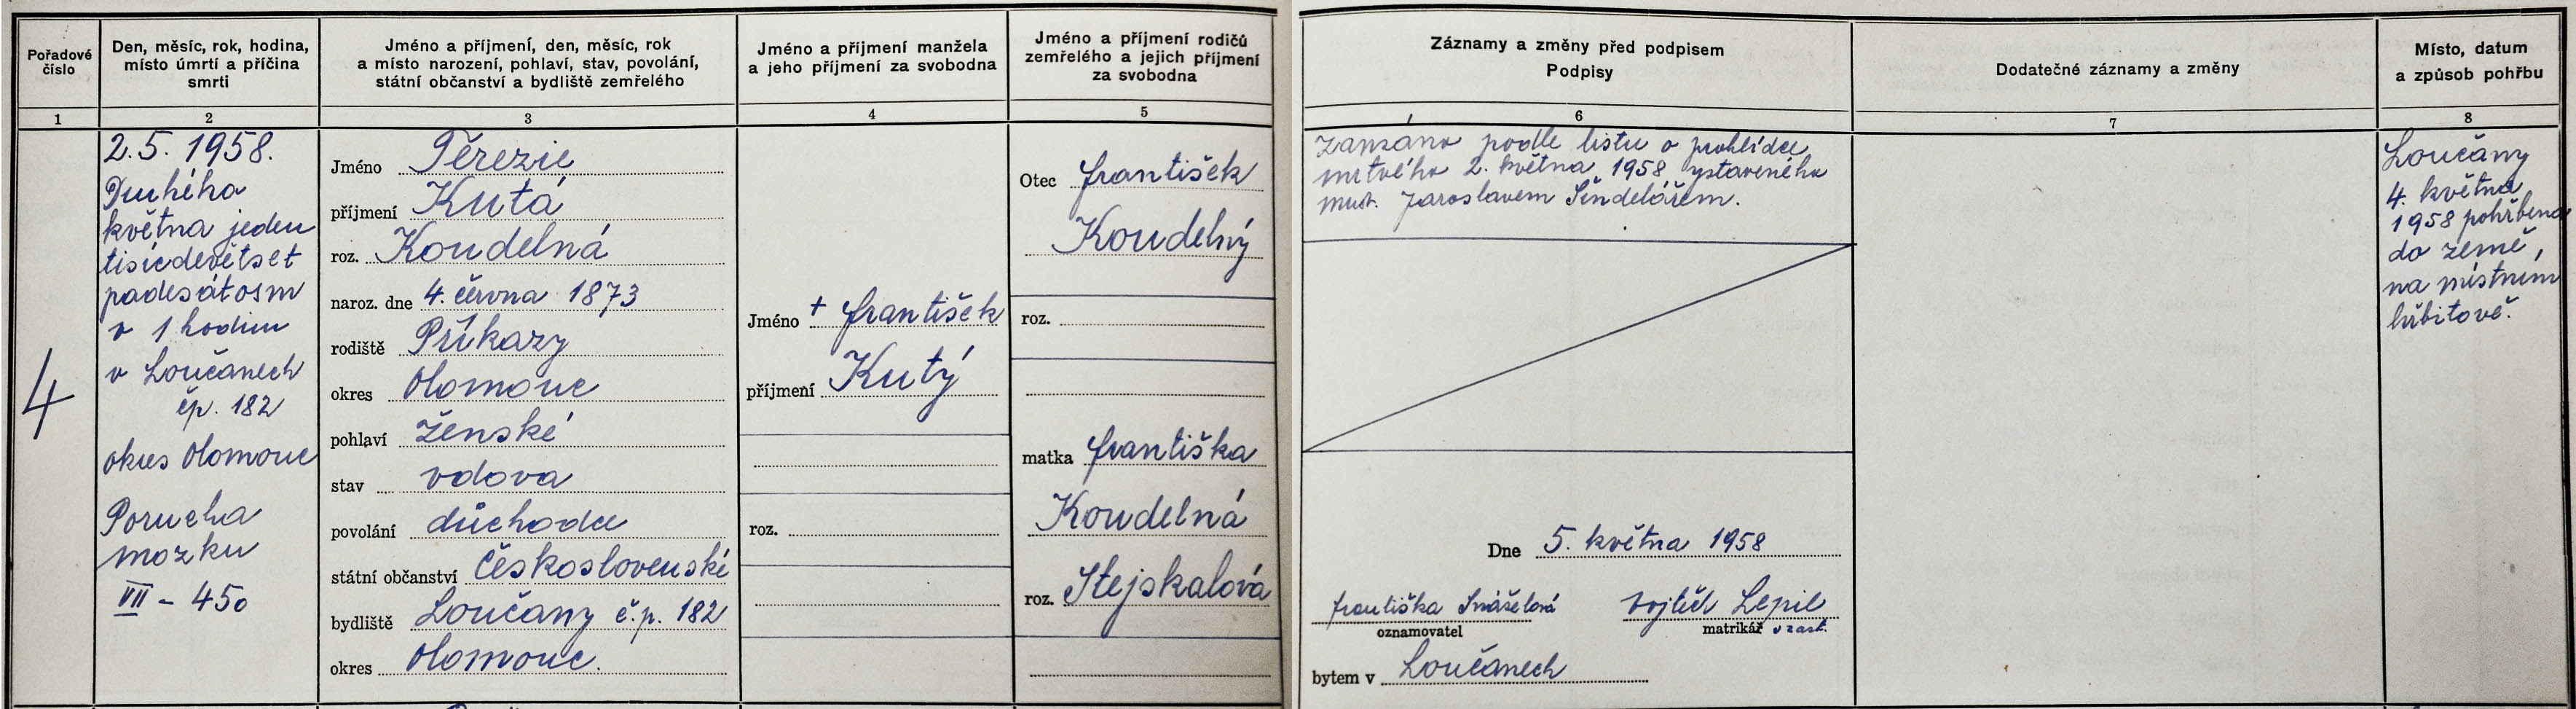 Pořadové
číslo
Den, měsíc, rok, hodina,
místo úmrtí a příčina
smrti
Jméno a příjmení, den, měsíc, rok
a místo narození, pohlaví, stav, povolání,
státní občanství a bydliště zemřelého
Jméno a příjmení manžela
a jeho příjmení za svobodna
Jméno a příjmení rodičů
zemřelého a jejich příjmení
za svobodna
Záznamy a změny před podpisem
Podpisy
Dodatečné záznamy a změny
Místo, datum
a způsob pohřbu
1
2
3
4
5
6
7
8
4
2.5. 1958.
Druhého
května jeden
tisícdevětset
padesátosm
v 1 hodin
v Loučanech
čp. 182
okres Olomouc
Porucha
mozku
VII - 450
Jméno Terezie
příjmení Kutá
roz. Koudelná
naroz. dne 4. června 1873
rodiště Příkazy
okres Olomouc
pohlaví ženské
stav vdova
povolání důchodce
státní občanství československé
bydliště Loučany č.p. 182
okres Olomouc.
Jméno + František
příjmení Kutý
roz.
Otec František
Koudelný
roz.
matka Františka
Koudelná
roz. Stejskalová
zapsáno podle listu o prohlídce
mrtvého 2. května 1958 vystaveného
MUDr. Jaroslavem Šindelářem.
Dne 5. května 1958
Františka Snášelová Vojtěch Lepil
oznamovatel matrikář v zast.
bytem v Loučanech
Loučany
4. května
1958 pohřbena
do země,
na místním
hřbitově.